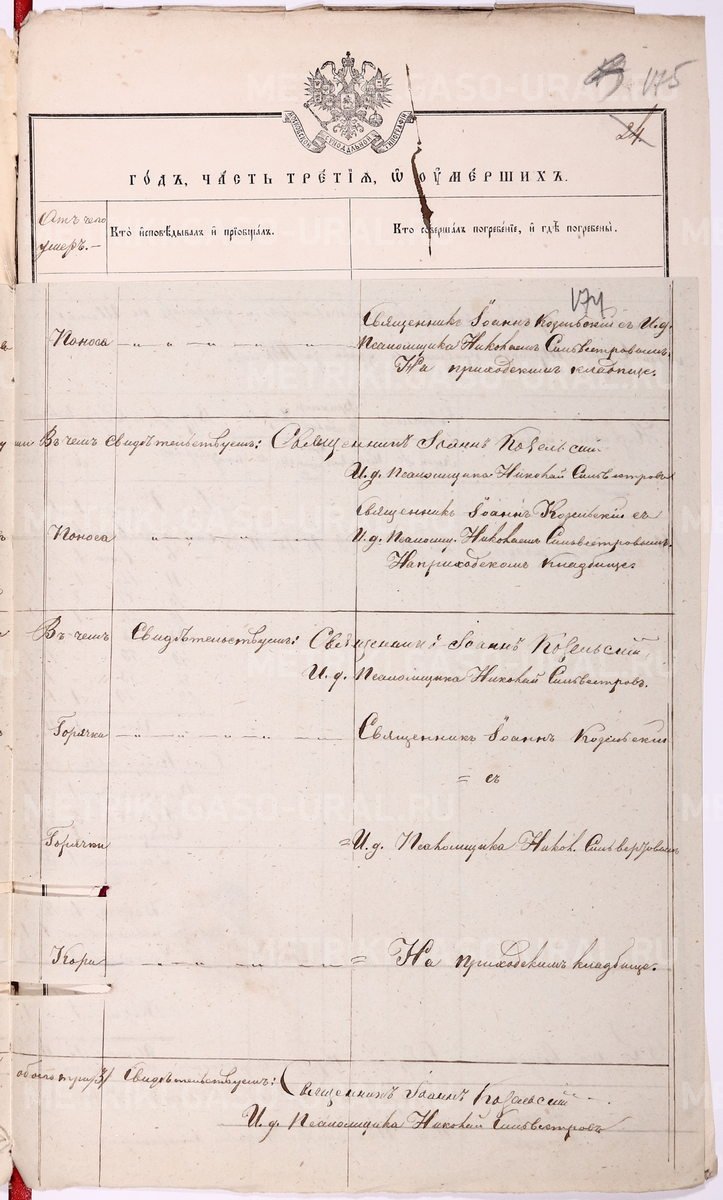 175
24.
МОСКОВСКОЙ СѴНОДАЛЬНОЙ ТИПОГРАФІИ
ГО́ДЪ, ЧА́СТЬ ТРЕ́ТІѦ, Ѿ ОУ҆МЕ́РШИХЪ.
Отъ чего умеръ.—
Кто̀ и҆сповѣ́дывалъ и҆ прїѡбща́лъ.
Кто̀ соверша́лъ погребе́нїе, и҆ гдѣ̀ погребены̀.
174
Священникъ Іоаннъ Козельскій съ И.д.
Поноса — „ — „ — Псаломщика Николаемъ Сильвестровымъ.
На приходскимъ кладбище.
Въ чемъ свидѣтельствуемъ: Священникъ Іоаннъ Козельскій
И. д. Псаломщика Николай Сильвестровъ
Священникъ Іоаннъ Козельскій съ
Поноса „ — „ — „ И. д. Псаломщ. Николаемъ Сильвестровымъ.
На приходскомъ кладбище.
Въ чемъ Свидѣтельствуемъ: Священникъ Іоаннъ Козельскій
И. д. Псаломщика Николай Сильвестровъ.
Горячка — „ — „ — „ — Священникъ Іоаннъ Козельскій
= съ
Горячки = И. д. Псаломщика Никол. Сильвестровымъ
Кори — „ — „ — = На приходскимъ кладбище.
обоего три /3/ Свидѣтельствуемъ: Священникъ Іоаннъ Козельскій
И. д. Псаломщика Николай Сильвестровъ
METRIKI.GASO-URAL.RU